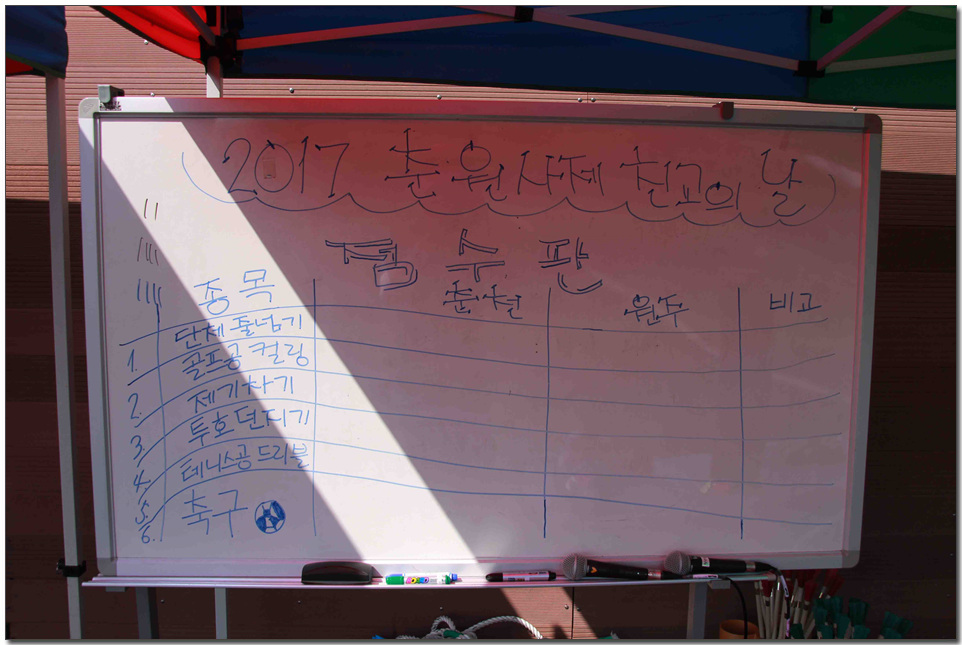 2017 춘·원 사제 친교의 날
점수판
종목 춘·천 원주 비고
1. 단체 줄넘기
2. 골프공 컬링
3. 제기차기
4. 투호 던지기
5. 테니스공 드리블
6. 축구